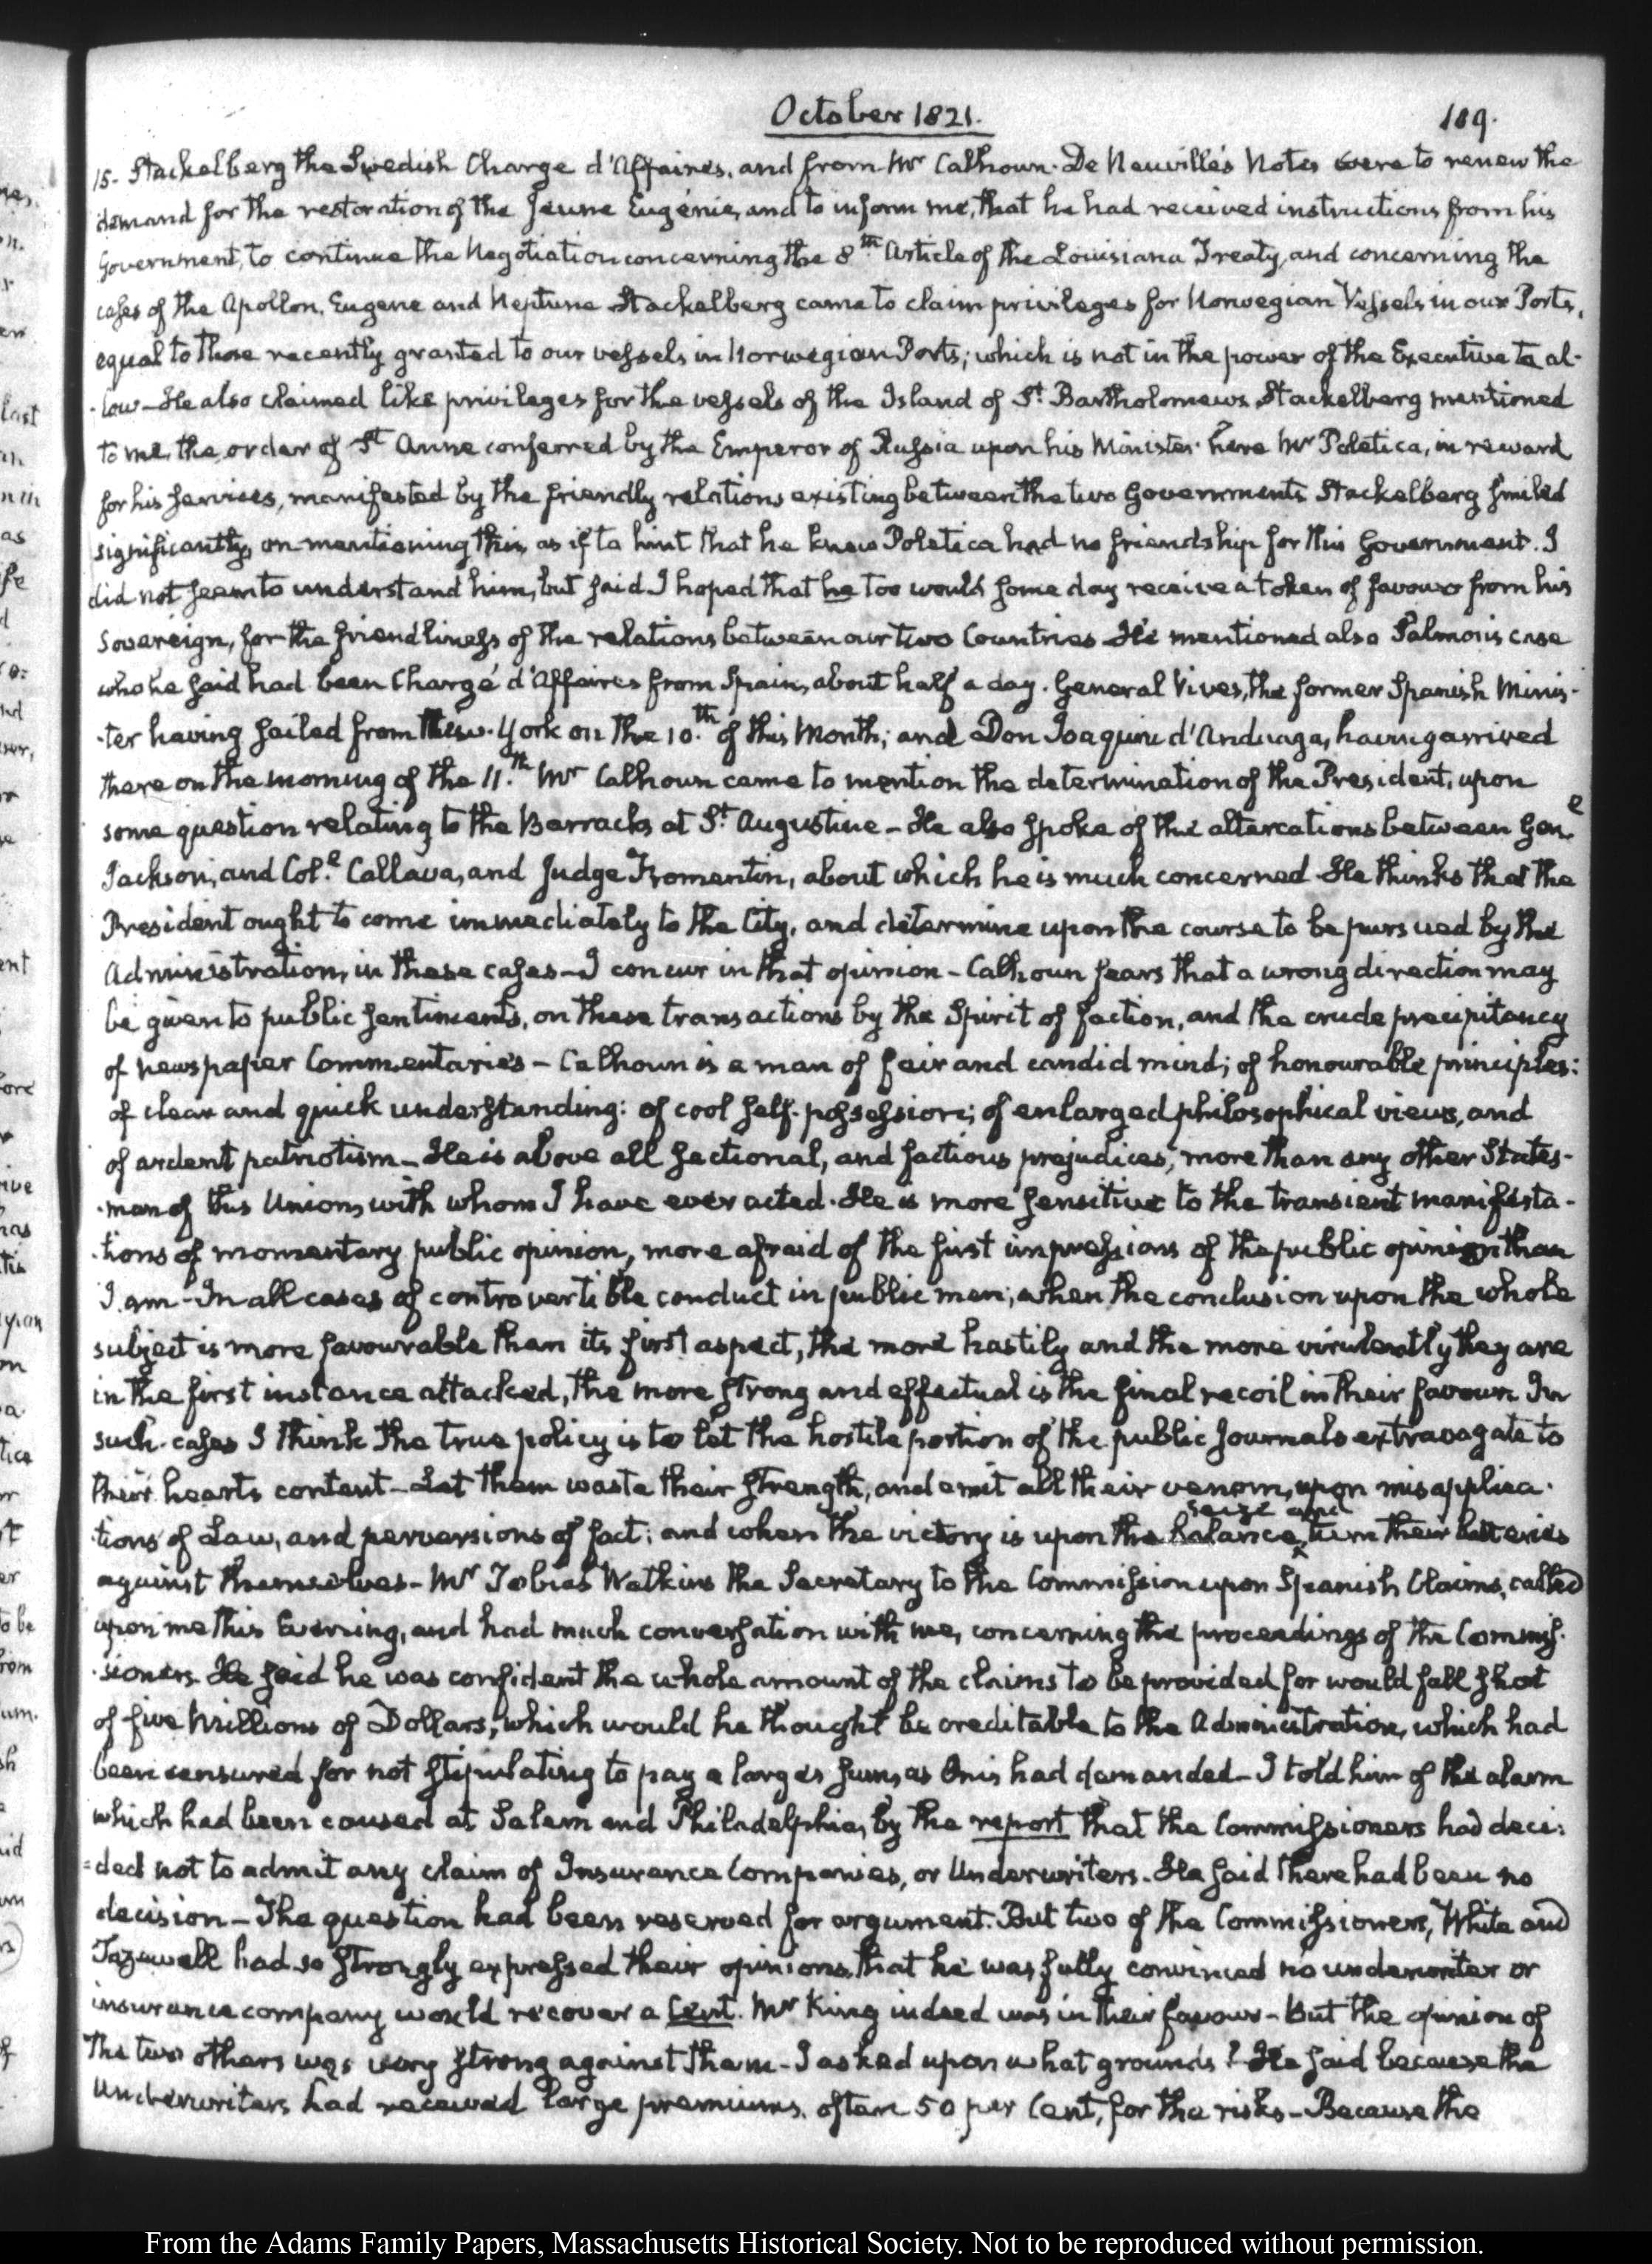 October 1821.
189.
15. Stackelberg the Swedish Charge d'Affaires, and from Mr Calhoun. De Neuville's Notes were to renew the
demand for the restoration of the Jeune Eugénie, and to inform me, that he had received instructions from his
Government, to continue the Negotiation concerning the 8th. Article of the Louisiana Treaty, and concerning the
cases of the Apollon, Eugene and Neptune Stackelberg came to claim privileges for Norwegian Vessels in our Ports,
equal to those recently granted to our vessels in Norwegian Ports; which is not in the power of the Executive to al-
-low—He also claimed like privileges for the vessels of the Island of St. Bartholomews Stackelberg mentioned
to me, the order of St Anne conferred by the Emperor of Russia upon his Minister here Mr Poletica, in reward
for his services, manifested by the friendly relations existing between the two Governments Stackelberg smiled
significantly, on mentioning this, as if to hint that he knew Poletica had no friendship for this Government. I
did not seem to understand him, but said I hoped that he too would some day receive a token of favour from his
Sovereign, for the friendliness of the relations between our two Countries He mentioned also Salmon's case
who he said had been Chargé d'Affaires from Spain, about half a day. General Vives, the former Spanish Minis-
-ter having sailed from New-York on the 10.th of this Month; and Don Joaquin d'Anduaga, having arrived
there on the morning of the 11.th Mr Calhoun came to mention the determination of the President, upon
some question relating to the Barracks at St. Augustine—He also spoke of the altercations between Gen.l
Jackson, and Col.l Callava, and Judge Fromentin, about which he is much concerned He thinks that the
President ought to come immediately to the City, and determine upon the course to be pursued by the
Administration, in these cases—I concur in that opinion—Calhoun fears that a wrong direction may
be given to public sentiments, on these transactions by the Spirit of faction, and the crude precipitancy
of newspaper Commentaries—Calhoun is a man of fair and candid mind; of honourable principles:
of clear and quick understanding: of cool self-possession; of enlarged philosophical views, and
of ardent patriotism—He is above all sectional, and factious prejudices, more than any other States-
-man of this Union, with whom I have ever acted. He is more sensitive to the transient manifesta-
-tions of momentary public opinion, more afraid of the first impressions of the public opinion than
I am—In all cases of controvertible conduct in public men, when the conclusion upon the whole
subject is more favourable than its first aspect, the more hastily and the more virulently they are
in the first instance attacked, the more strong and effectual is the final recoil in their favour In
such cases I think the true policy is to let the hostile portion of the public Journals extravagate to
their hearts content—Let them waste their strength, and emit all their venom, upon misapplica-
seize and
-tions of Law, and perversions of fact; and when the victory is upon the balance, turn their batteries
against themselves—Mr Tobias Watkins the Secretary to the Commission upon Spanish Claims, called
upon me this Evening, and had much conversation with me, concerning the proceedings of the Commis-
-sioners. He said he was confident the whole amount of the claims to be provided for would fall short
of five Millions of Dollars, which would he thought be creditable to the Administration, which had
been censured for not stipulating to pay a larger sum, as Onis had demanded—I told him of the alarm
which had been caused at Salem and Philadelphia, by the report that the Commissioners had deci-
=ded not to admit any claim of Insurance Companies, or Underwriters. He said there had been no
decision—The question had been reserved for argument. But two of the Commissioners, White and
Tazewell had so strongly expressed their opinions, that he was fully convinced no underwriter or
insurance company would recover a Cent. Mr King indeed was in their favour—But the opinion of
the two others was very strong against them—I asked upon what grounds? He said because the
Underwriters had received large premiums, often 50 per Cent, for the risks—Because the
From the Adams Family Papers, Massachusetts Historical Society. Not to be reproduced without permission.